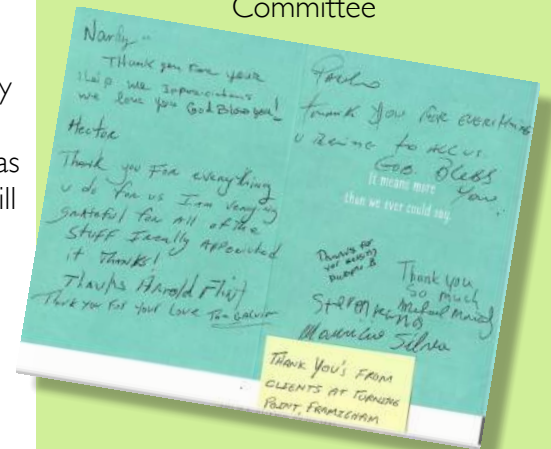 Committee
y
as
ill
Nardy -
Thank you For your
Help we
we love you God Bless you!
Hector
Thank you For everything
u do for us I am verying
grateful for all of the
STUFF I really
it Thanks!
Thanks Harold Flint
Thank you For Your Love Tom
Paulo
Thank you for everything
u to all us.
God Bless
You.
It means more
than we ever could say.
Thanks for
Thank you
so much
Michael
Steven
Mauricio Silva
THANK YOU'S FROM
CLIENTS AT TURNING
POINT, FRAMIGHAM